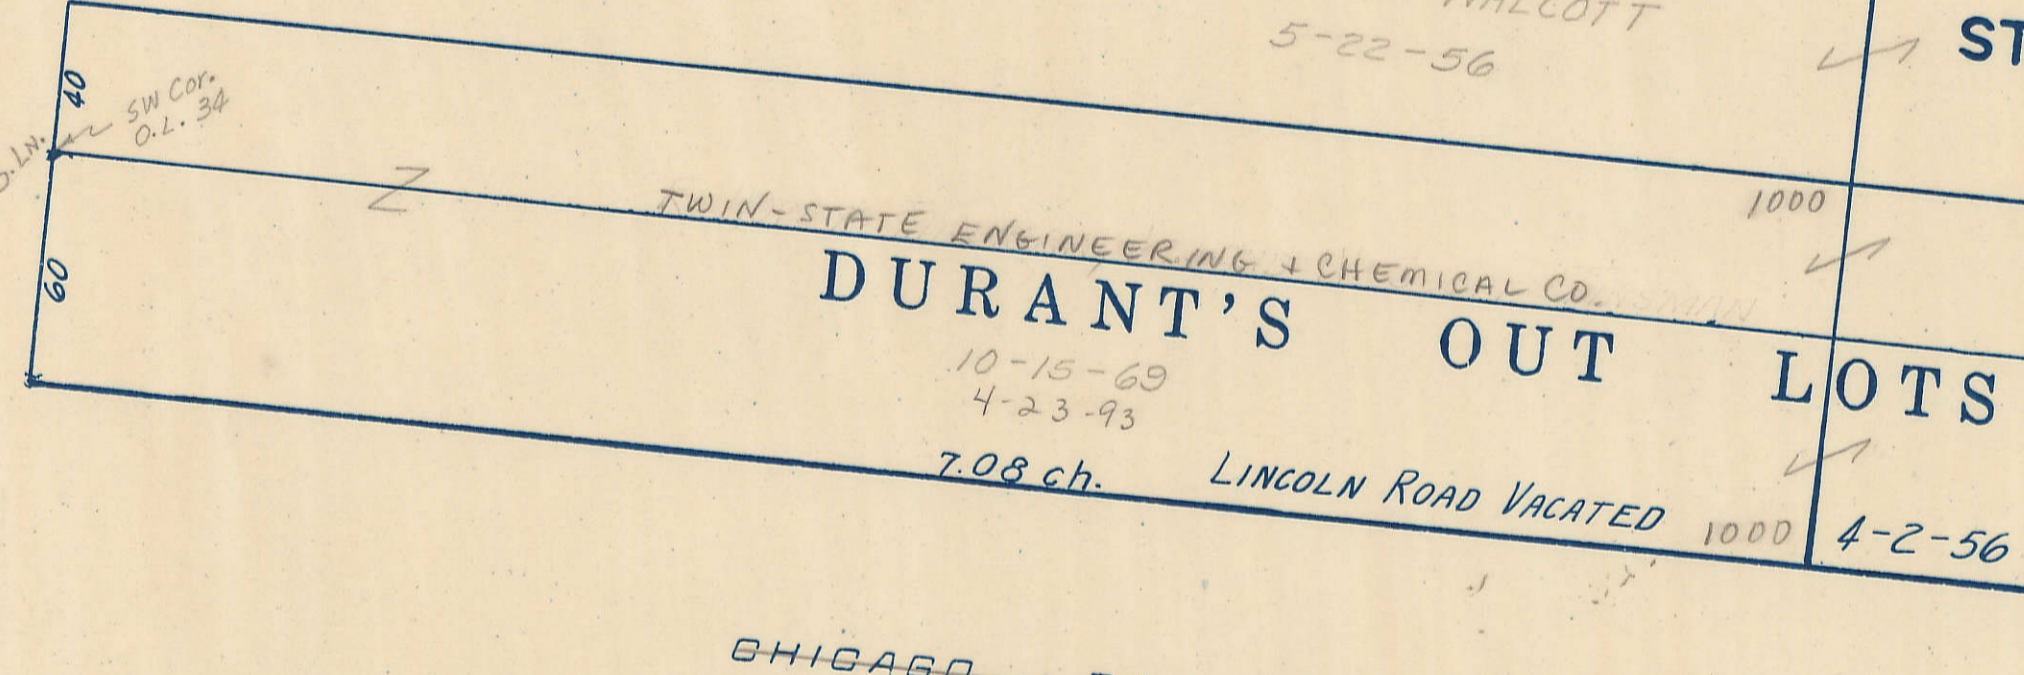 WALCOTT
5-22-56
ST
40
SW Cor.
O.L. 34
LN.
1000
Z
TWIN-STATE ENGINEERING + CHEMICAL CO.
60
DURANT'S OUT LOTS
10-15-69
4-23-93
7.08 ch.
LINCOLN ROAD VACATED
1000
4-2-56
CHICAGO